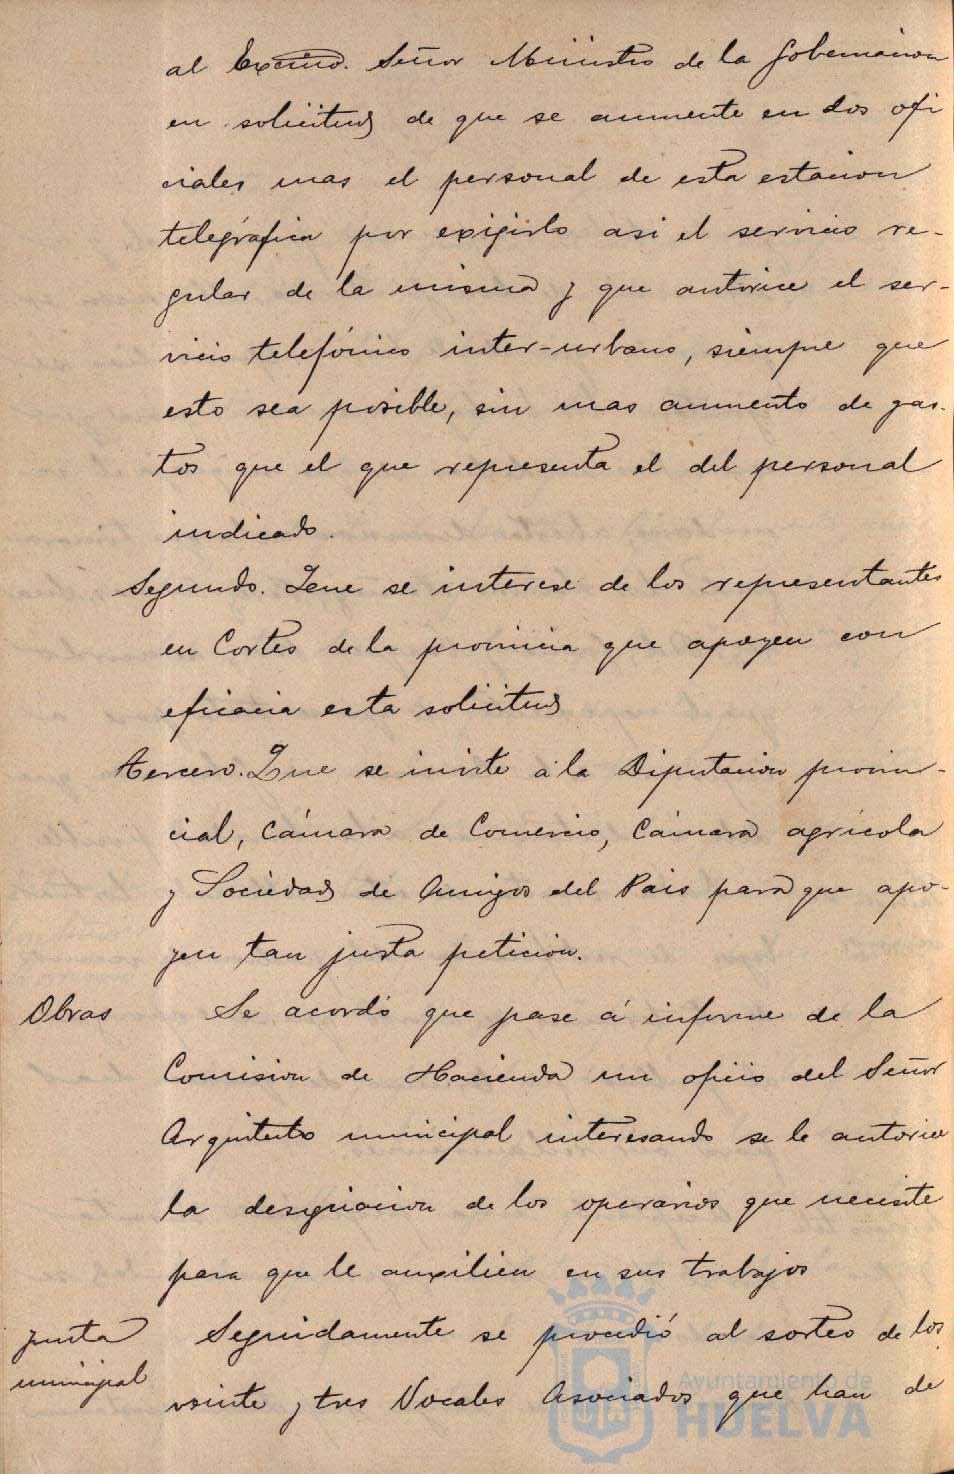 al Excmo. Señor Ministro de la Gobernacion
en solicitud de que se aumente en dos ofi
ciales mas el personal de esta estacion
telegráfica por exigirlo asi el servicio re-
gular de la misma y que autorice el ser-
vicio telefónico inter-urbano, siempre que
esto sea posible, sin mas aumento de gas-
tos que el que representa el del personal
indicado.
Segundo. Que se interese de los representantes
en Cortes de la provincia que apoyen con
eficacia esta solicitud
Tercero. Que se invite á la Diputacion provin-
cial, Cámara de Comercio, Cámara agrícola
y Sociedad de Amigos del Pais para que apo-
yen tan justa peticion.
Obras Se acordó que pase á informe de la
Comision de Hacienda un oficio del Señor
Arquitecto municipal interesando se le autorice
la designacion de los operarios que necesite
para que le auxilien en sus trabajos
Junta Seguidamente se procedió al sorteo de los
municipal veinte y tres Vocales Asociados que han de
Ayuntamiento de
HUELVA